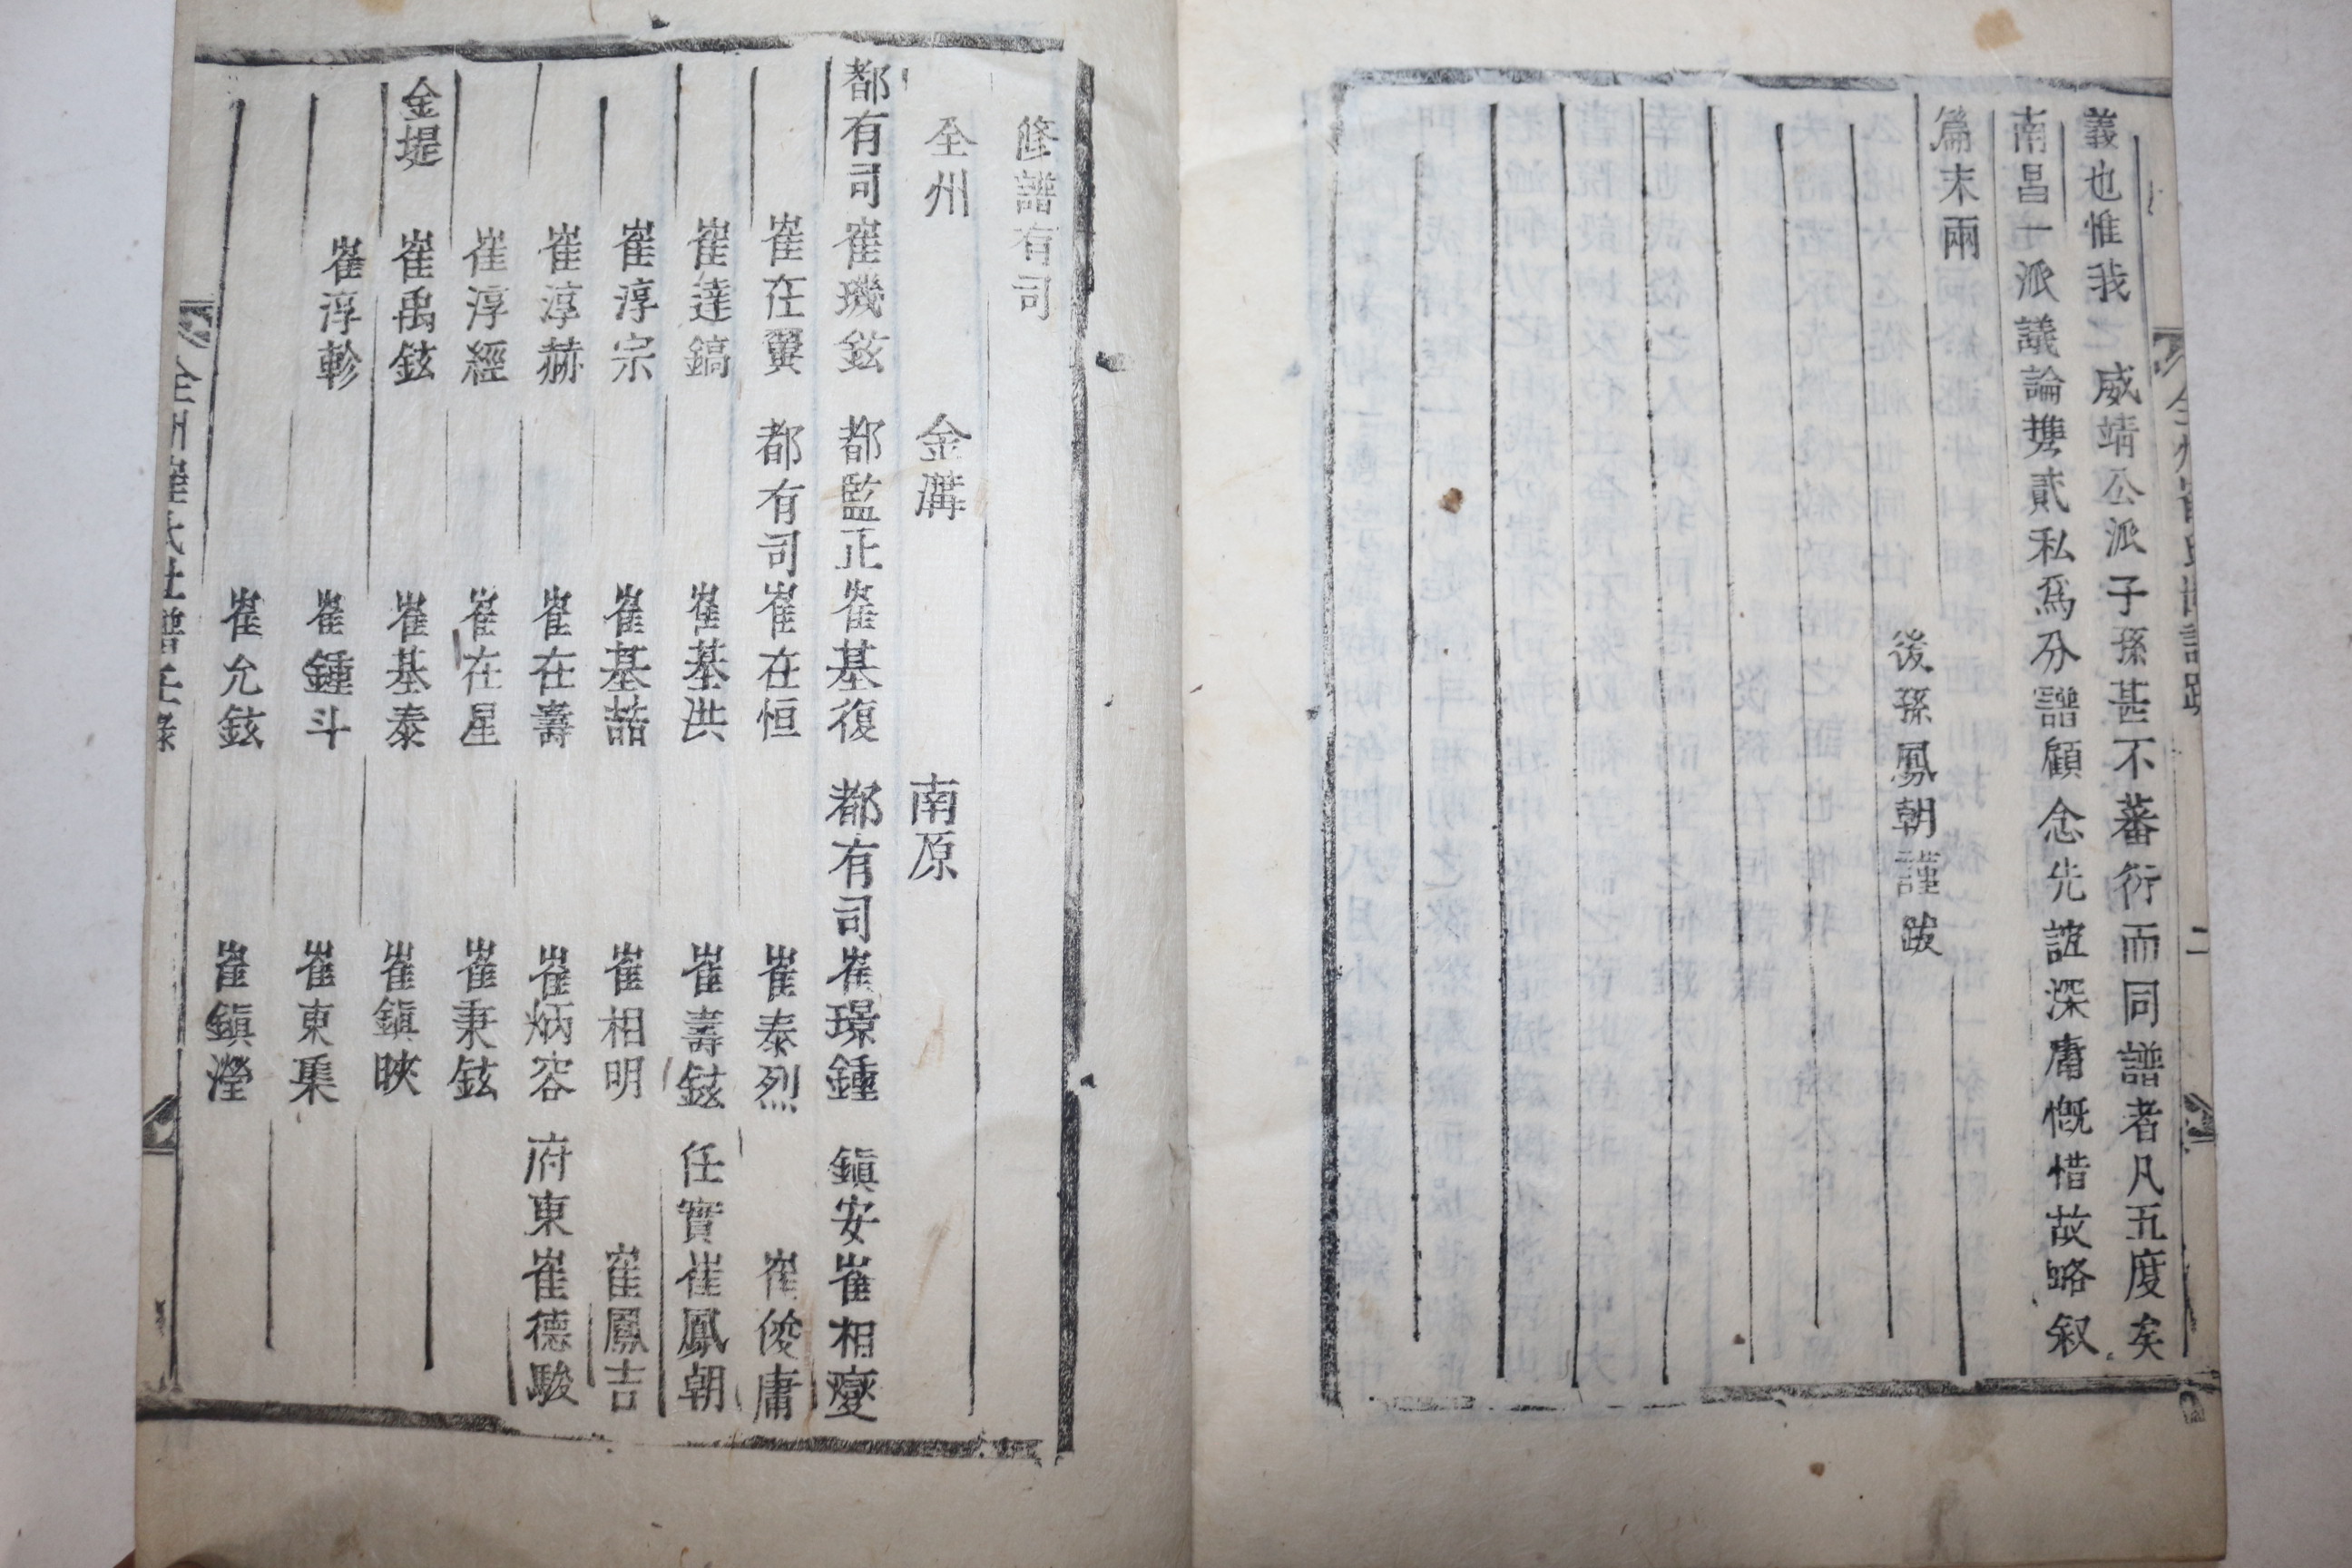 義也惟我 威靖公派子孫甚不蕃衍而同譜者凡五度矣
南昌一派議論携貳私爲分譜顧念先誼深庸慨惜故略叙
篇末爾
後孫鳳朝謹跋
二
修譜有司
全州 金溝 南原
都有司崔璣鉉 都監正崔基復 都有司崔璟鍾 鎭安崔相燮
崔在翼 都有司崔在恒 崔泰烈 崔俊庸
崔達鎬 崔基洪 崔壽鉉 任實崔鳳朝
崔淳宗 崔基喆 崔相明 崔鳳吉
崔淳赫 崔在壽 崔炳容 府東崔德駿
崔淳經 崔在星 崔秉鉉
金堤 崔禹鉉 崔基泰 崔鎭映
崔淳軫 崔鍾斗 崔東集
崔允鉉 崔鎭瀅
全州崔氏世譜任錄